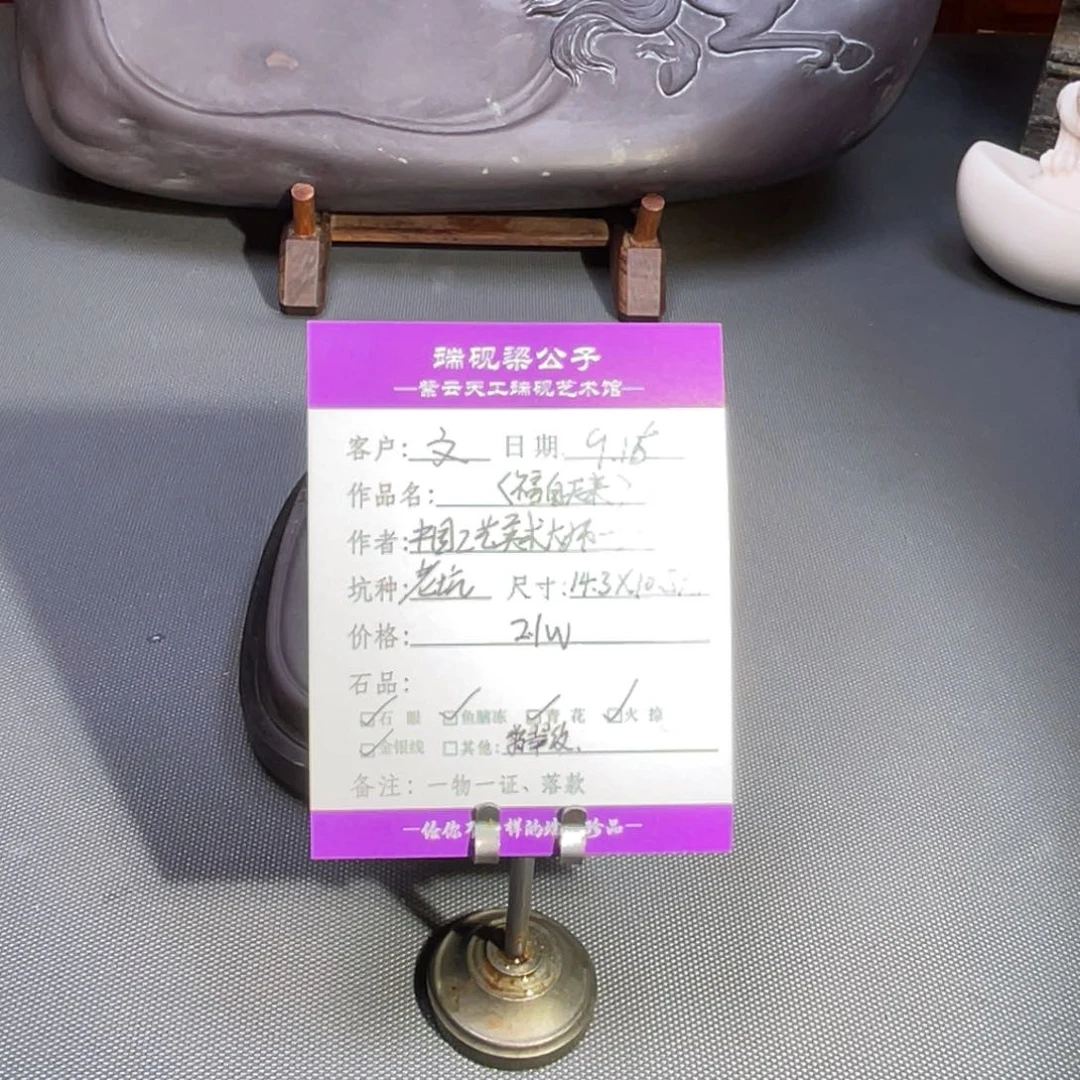 瑞砚梁公子
—紫云天工端砚艺术馆—
客户: 文 日期 9.15
作品名: 《福自天来》
作者: 中国工艺美术大师
坑种: 老坑 尺寸: 14.3X10
价格: 21W
石品:
☑石眼 ☑鱼脑冻 ☑青花 ☑火捺
☑金银线 □其他:
备注: 一物一证、落款
—给你不一样的 珍品—